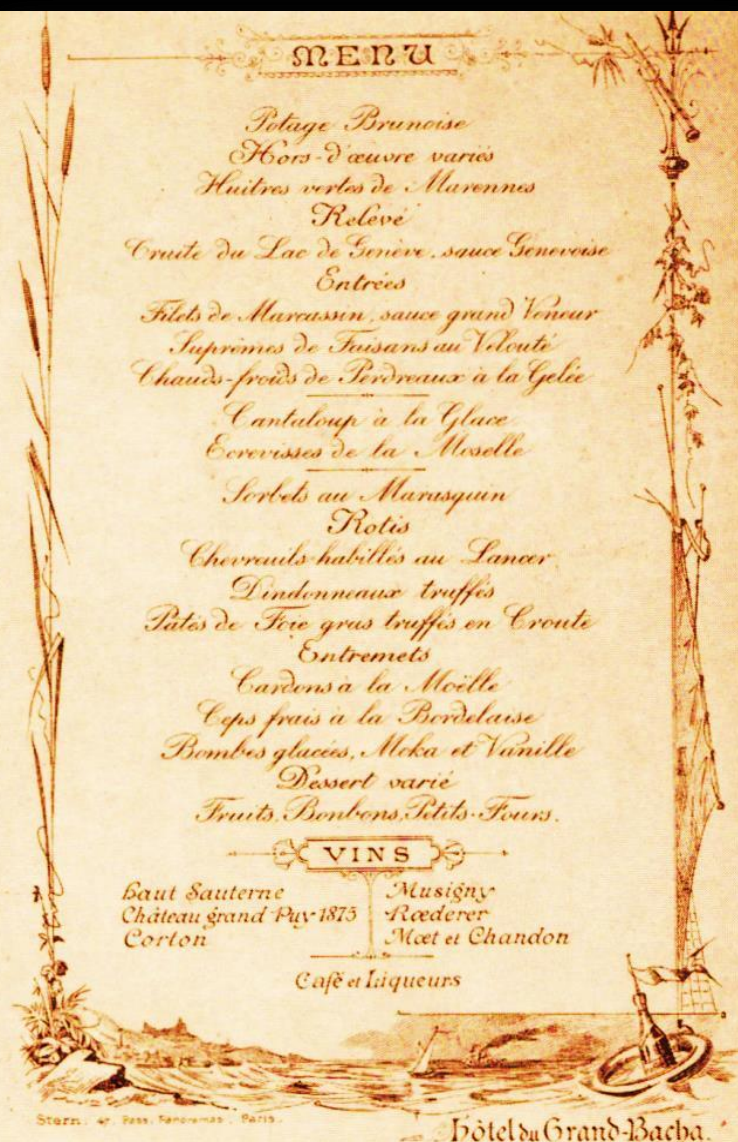 MENU
Potage Brunoise
Hors-d'œuvre variés
Huitres vertes de Marennes
Relevé
Truite du Lac de Genève, sauce Génevoise
Entrées
Filets de Marcassin, sauce grand Veneur
Suprêmes de Faisans au Velouté
Chauds-froids de Perdreaux à la Gelée
Cantaloup à la Glace
Ecrevisses de la Moselle
Sorbets au Marasquin
Rotis
Chevreuils habillés au Lancer
Dindonneaux truffés
Patés de Foie gras truffés en Croute
Entremets
Cardons à la Moëlle
Ceps frais à la Bordelaise
Bombes glacées, Moka et Vanille
Dessert varié
Fruits, Bonbons, Petits-Fours.
VINS
Haut Sauterne
Château grand Puy 1875
Corton
Musigny
Rœderer
Mœt et Chandon
Café et Liqueurs
Stern, 47, Pass. Panoramas, Paris.
Hôtel du Grand-Bacha.